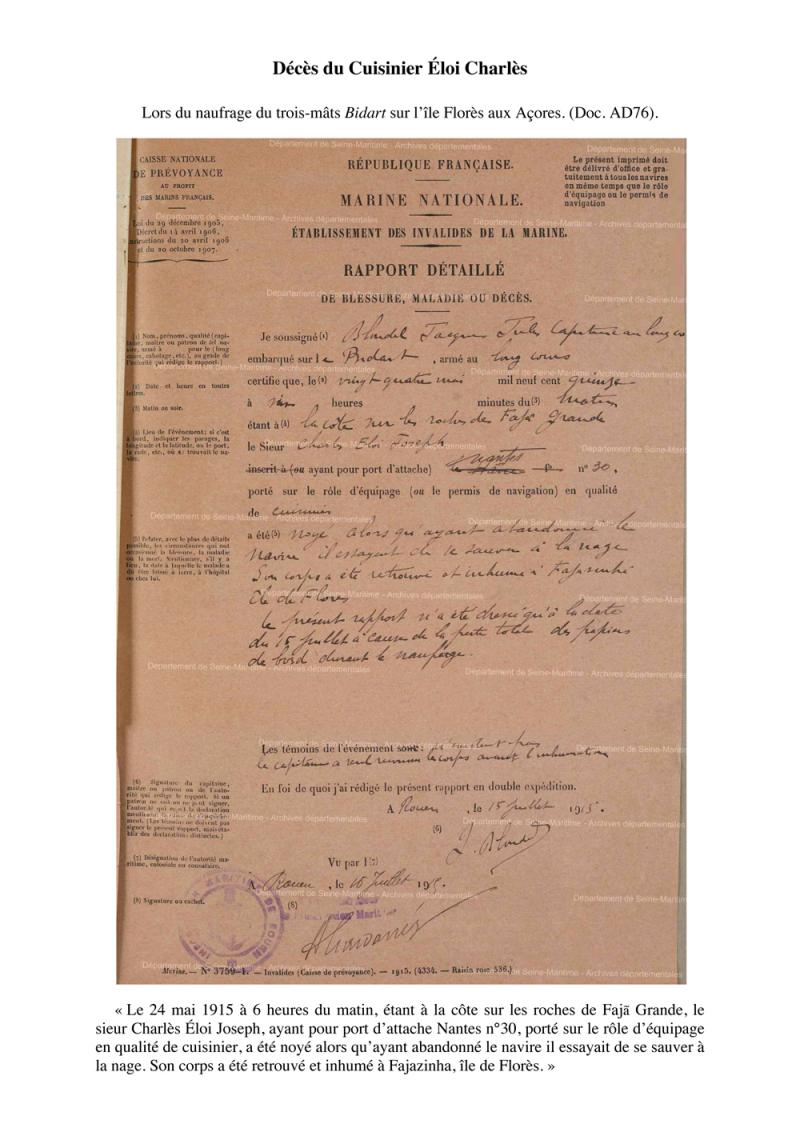 Décès du Cuisinier Éloi Charlès
Lors du naufrage du trois-mâts Bidart sur l'île Florès aux Açores. (Doc. AD76).
CAISSE NATIONALE
DE PRÉVOYANCE
AU PROFIT
DES MARINS FRANÇAIS.
Loi du 29 décembre 1905,
Décret du 14 avril 1906,
Instructions du 20 avril 1906
et du 20 octobre 1907.
RÉPUBLIQUE FRANÇAISE.
MARINE NATIONALE.
ÉTABLISSEMENT DES INVALIDES DE LA MARINE.
Le présent imprimé doit
être délivré d'office et gra-
tuitement à tous les navires
en même temps que le rôle
d'équipage ou le permis de
navigation
RAPPORT DÉTAILLÉ
DE BLESSURE, MALADIE OU DÉCÈS.
(1) Nom, prénoms, qualité (capi-
taine, maître ou patron de tel na-
vire, armé à pour le (long
cours, cabotage, etc.), ou grade de
l'autorité qui rédige le rapport.)
(2) Date et heure en toutes
lettres.
(3) Matin ou soir.
(4) Lieu de l'événement; si c'est
à bord, indiquer les parages, la
longitude et la latitude, ou le port,
la rade, etc., où se trouvait le na-
vire.
(5) Relater, avec le plus de détails
possible, les circonstances qui ont
occasionné la blessure, la maladie
ou la mort. Mentionner, s'il y a
lieu, la date à laquelle le malade a
dû être laissé à terre, à l'hôpital
ou chez lui.
Je soussigné (1) Blondel Jacques Jules Capitaine au long cours
embarqué sur le Bidart, armé au long cours
certifie que, le (2) vingt quatre mai mil neuf cent quinze
à six heures minutes du (3) matin
étant à (4) la côte sur les roches de Fajã Grande
le Sieur Charlès Eloi Joseph
inscrit à (ou ayant pour port d'attache) Nantes n° 30,
porté sur le rôle d'équipage (ou le permis de navigation) en qualité
de cuisinier
a été (5) noyé alors qu'ayant abandonné le
navire il essayait de se sauver à la nage
Son corps a été retrouvé et inhumé à Fajasinha
Ile de Flores
Le présent rapport n'a été dressé qu'à la date
du 15 juillet à cause de la perte totale des papiers
de bord durant le naufrage.
Les témoins de l'événement sont: n'existent pas
le capitaine a seul reconnu le corps avant l'inhumation
En foi de quoi j'ai rédigé le présent rapport en double expédition.
A Rouen, le 15 juillet 1915.
(6)
J. Blondel
(6) Signature du capitaine,
maître ou patron ou de l'auto-
rité qui rédige le rapport. Si un
patron ne sait ou ne peut signer,
l'autorité qui reçoit la déclaration
signer le présent rapport, mais éta-
blir des déclarations distinctes.)
(7) Désignation de l'autorité ma-
ritime, coloniale ou consulaire.
(8) Signature ou cachet.
Vu par l (7)
A Rouen, le 16 Juillet 1915.
(8)
Marine. — N° 3759-1. — Invalides (Caisse de prévoyance). — 1915. (4334. — Raisin rose 536.)
Département de Seine-Maritime - Archives départementales
« Le 24 mai 1915 à 6 heures du matin, étant à la côte sur les roches de Fajã Grande, le
sieur Charlès Éloi Joseph, ayant pour port d'attache Nantes n°30, porté sur le rôle d'équipage
en qualité de cuisinier, a été noyé alors qu'ayant abandonné le navire il essayait de se sauver à
la nage. Son corps a été retrouvé et inhumé à Fajazinha, île de Florès. »